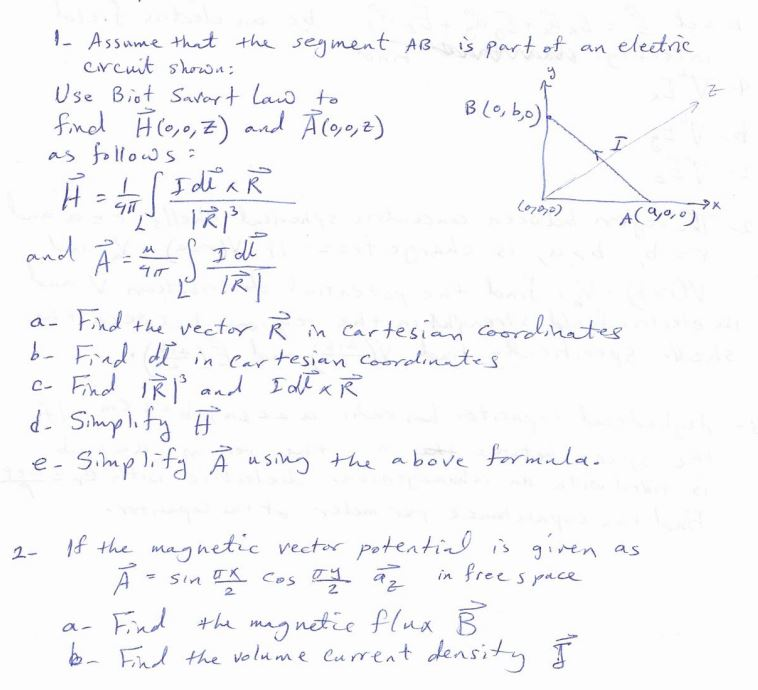 1- Assume that the segment AB is part of an electric
circuit shown:
Use Biot Savart Law to
find H⃗(0,0,Z) and A⃗(0,0,Z)
as follows:
H⃗ = 1/4π ∫_L I dl⃗ x R⃗ / |R⃗|³
and A⃗ = μ/4π ∫_L I dl⃗ / |R⃗|
y
z
B(0,b,0)
I
(0,0,0)
A(a,0,0)
x
a- Find the vector R⃗ in cartesian coordinates
b- Find dl⃗ in cartesian coordinates
c- Find |R⃗|³ and I dl⃗ x R⃗
d- Simplify H⃗
e- Simplify A⃗ using the above formula.
2- If the magnetic vector potential is given as
A⃗ = sin σx/2 cos σy/2 a⃗z in free space
a- Find the magnetic flux B⃗
b- Find the volume current density J⃗